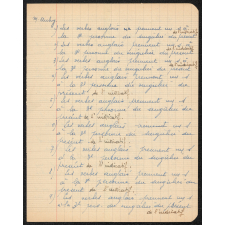 1) Les verbes anglais prennent un s
à la 3e personne du singulier du présent
de l'indicatif
2) Les verbes anglais prennent un s
à la 3e personne du singulier du présent
de l'indicatif
3) Les verbes anglais prennent un s
à la 3e personne du singulier du présent
de l'indicatif
4) Les verbes anglais prennent un s
à la 3e personne du singulier du
présent de l'indicatif
5) Les verbes anglais prennent un s
à la 3e personne du singulier du
présent de l'indicatif
6) Les verbes anglais prennent un s
à la 3e personne du singulier du
présent de l'indicatif
7) Les verbes anglais prennent un s
à la 3e personne du singulier du
présent de l'indicatif
8) Les verbes anglais prennent un s
à la 3e du singulier du présent
de l'indicatif